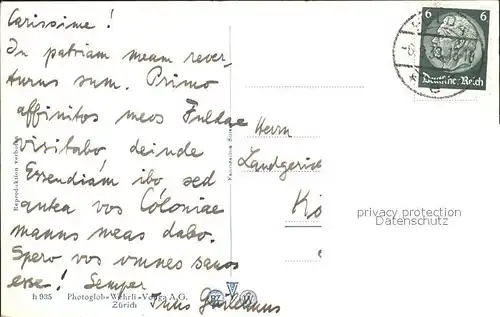 Carissime!
In patriam meam rever-
turus sum. Primo
affinitos meos Fuldae
visitabo deinde
Essendiam ibo, sed
antea vos Coloniae
manus meas dabo.
Spero vos omnes sanos
esse! Semper
Tuus
Herrn
Landgerich
Kö
6 6
Deutsches Reich
privacy protection
Datenschutz
Reproduktion verboten
h 935 Photoglob-Wehrli-Vouga A.G.
Zürich